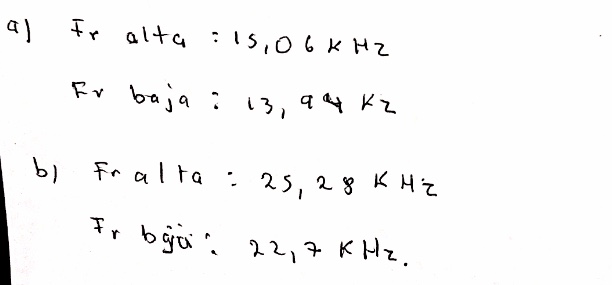 a) Fr alta : 15,06 KHz
Fr baja : 13,94 Kz
b) Fr alta : 25,28 KHz
Fr baja : 22,7 KHz.